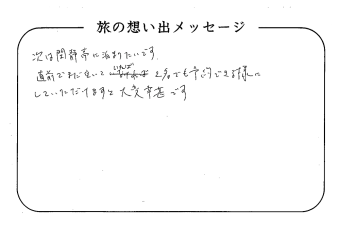 旅の想い出メッセージ
次は閑静亭に泊まりたいです。
直前でまだ空いていれば2名でも予約できる様に
していただけますと大変幸甚です